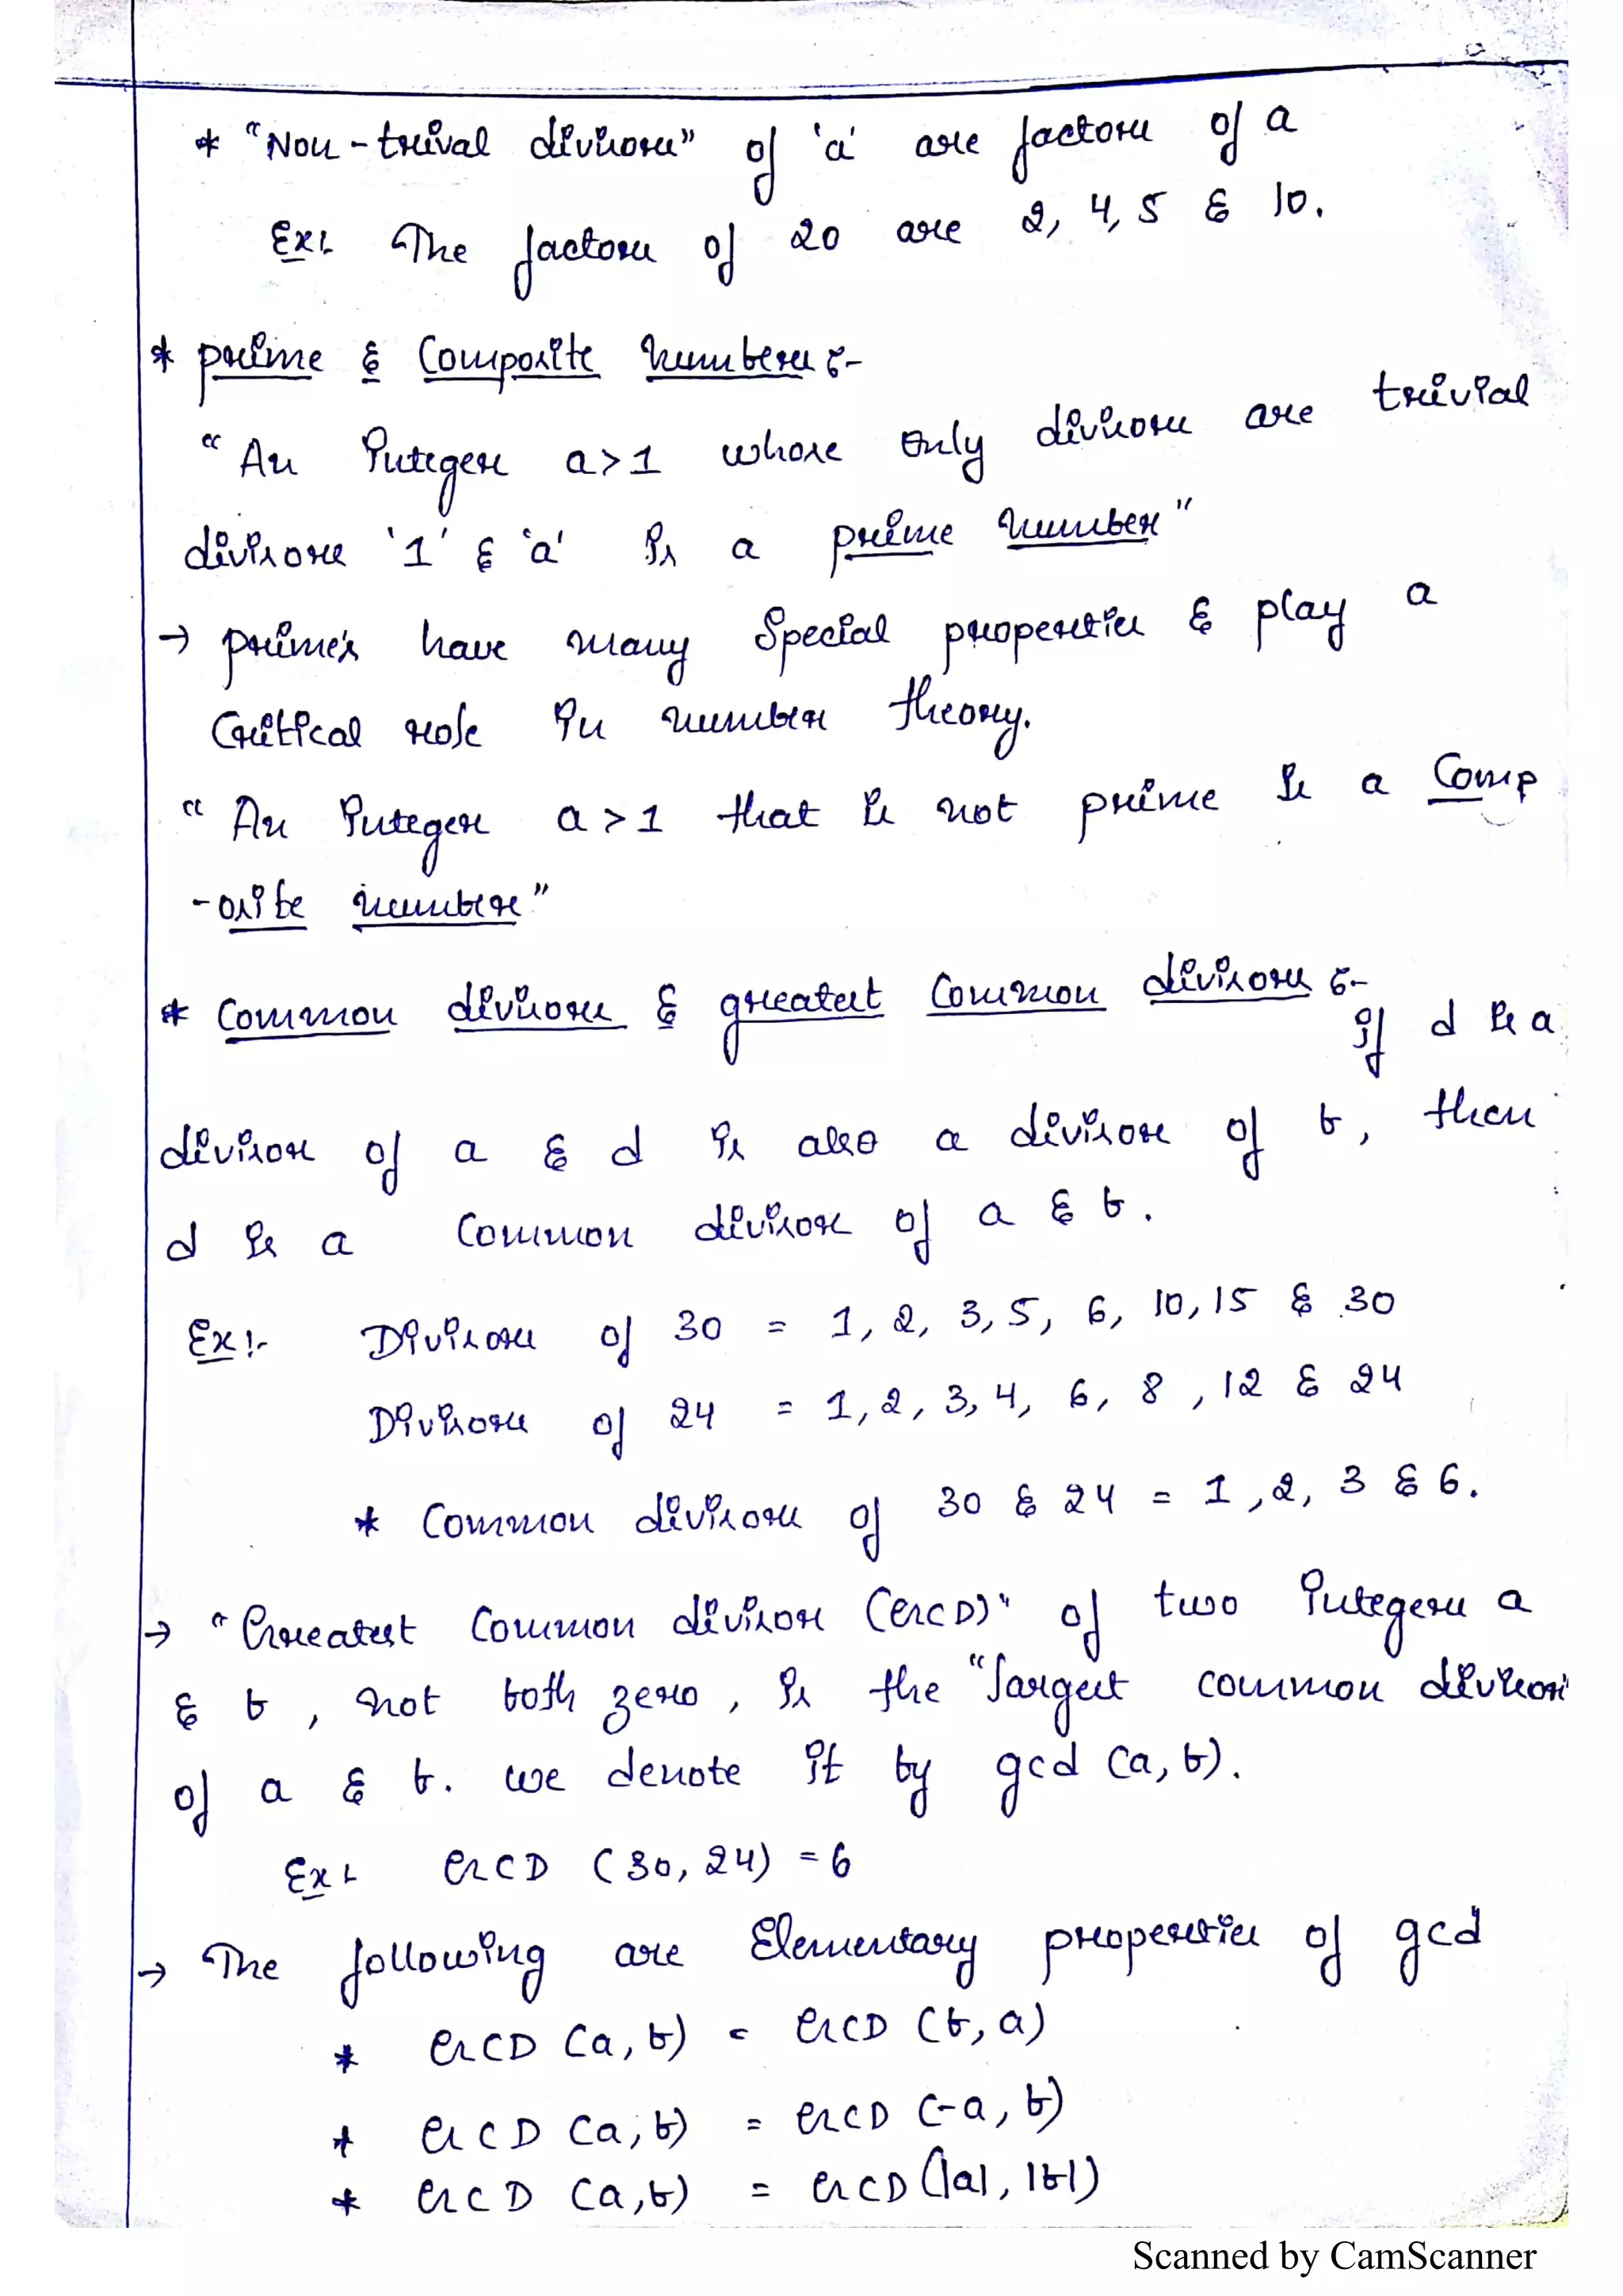 * "Non-trival divisors" of 'a' are factors of a
Ex:- The factors of 20 are 2, 4, 5 & 10.
* prime & Composite numbers :-
"An Integer a>1 whose only divisors are trivial
divisors '1' & 'a' is a prime number"
→ prime's have many Special properties & play a
Critical role in number theory.
"An Integer a>1 that is not prime is a Comp
-osite number"
* Common divisors & greatest Common divisors :-
If d is a
divisor of a & d is also a divisor of b, then
d is a Common divisor of a & b.
Ex:- Divisors of 30 = 1, 2, 3, 5, 6, 10, 15 & 30
Divisors of 24 = 1, 2, 3, 4, 6, 8, 12 & 24
* Common divisors of 30 & 24 = 1, 2, 3 & 6.
→ "Greatest Common divisor (GCD)" of two Integers a
& b, not both zero, is the "largest common divisor
of a & b. we denote it by gcd (a, b).
Ex:- GCD (30, 24) = 6
→ The following are Elementary properties of gcd
* GCD (a, b) = GCD (b, a)
* GCD (a, b) = GCD (-a, b)
* GCD (a, b) = GCD (|a|, |b|)
Scanned by CamScanner